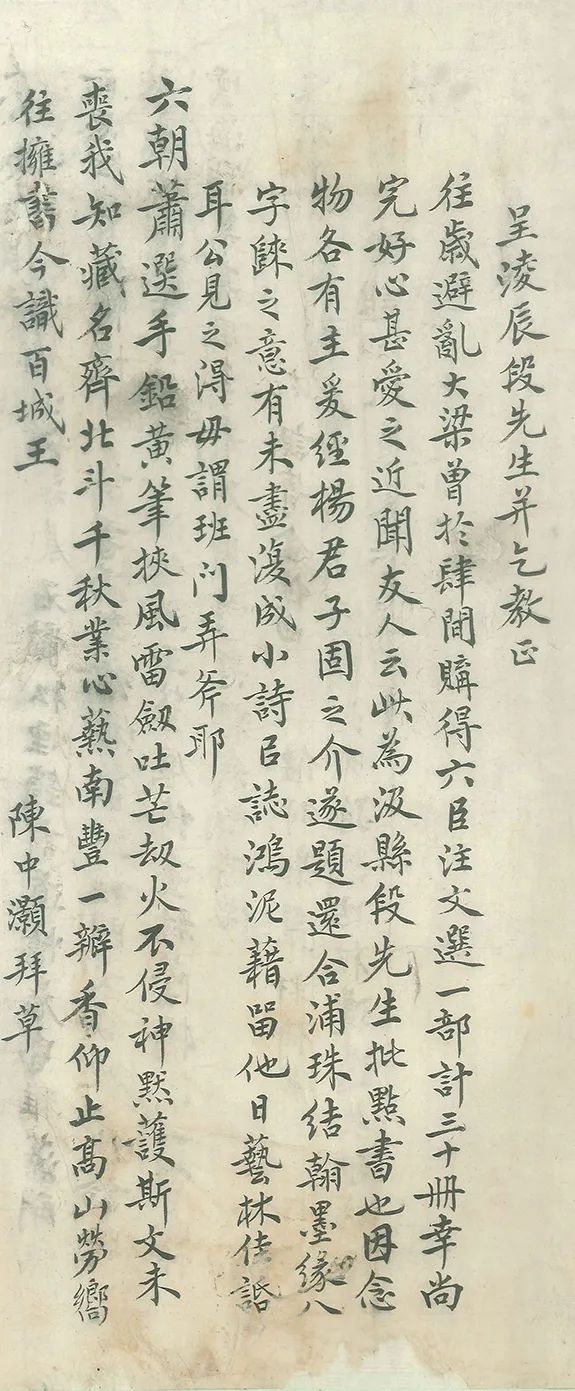 呈淩辰段先生并乞教正
往歲避亂大梁曾於肆間購得六臣注文選一部計三十冊幸尚
完好心甚愛之近聞友人云此為汲縣段先生批點書也因念
物各有主爰經楊君子固之介遂題還合浦珠結翰墨緣八
字歸之意有未盡復成小詩㠯誌鴻泥藉留他日藝林佳話
耳公見之得毋謂班门弄斧耶
六朝蕭選手鉛黃筆挾風雷劔吐芒劫火不侵神默護斯文未
喪我知藏名齊北斗千秋業心爇南豐一瓣香仰止高山勞嚮
往擁舊今識百城王
陳中灝拜草